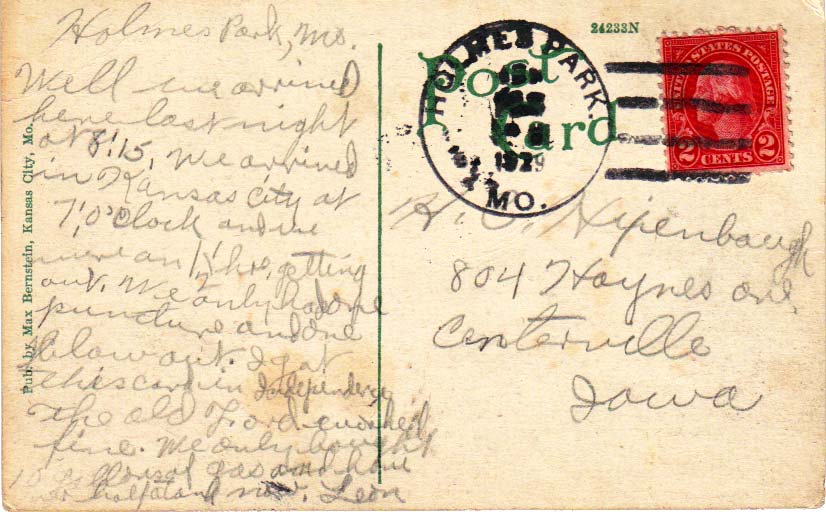 Holmes Park, Mo.
Well we arrived
here last night
at 8:15, we arrived
in Kansas City at
7, O'Clock and we
were an 1½ hrs, getting
out. We only had one
puncture and one
blow out. I got
this card in Independence
The old Ford worked
fine. We only bought
10 gallons of gas and have
half tank now. Leon
Pub. by Max Bernstein, Kansas City, Mo.
24233N
Post
Card
HOLMES PARK.
1929
MO.
UNITED STATES POSTAGE
2 CENTS 2
H. O. Hixenbaugh
804 Haynes ave,
Centerville
Iowa